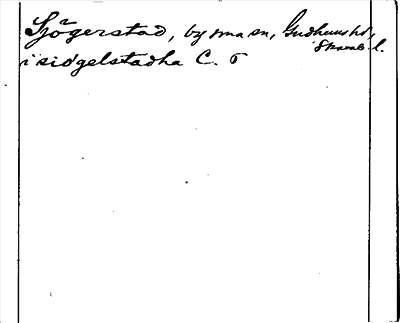 Sjögerstad, by sma sn, Gudhems hd,
Skarab. l.
i sidgelstadha C. 6